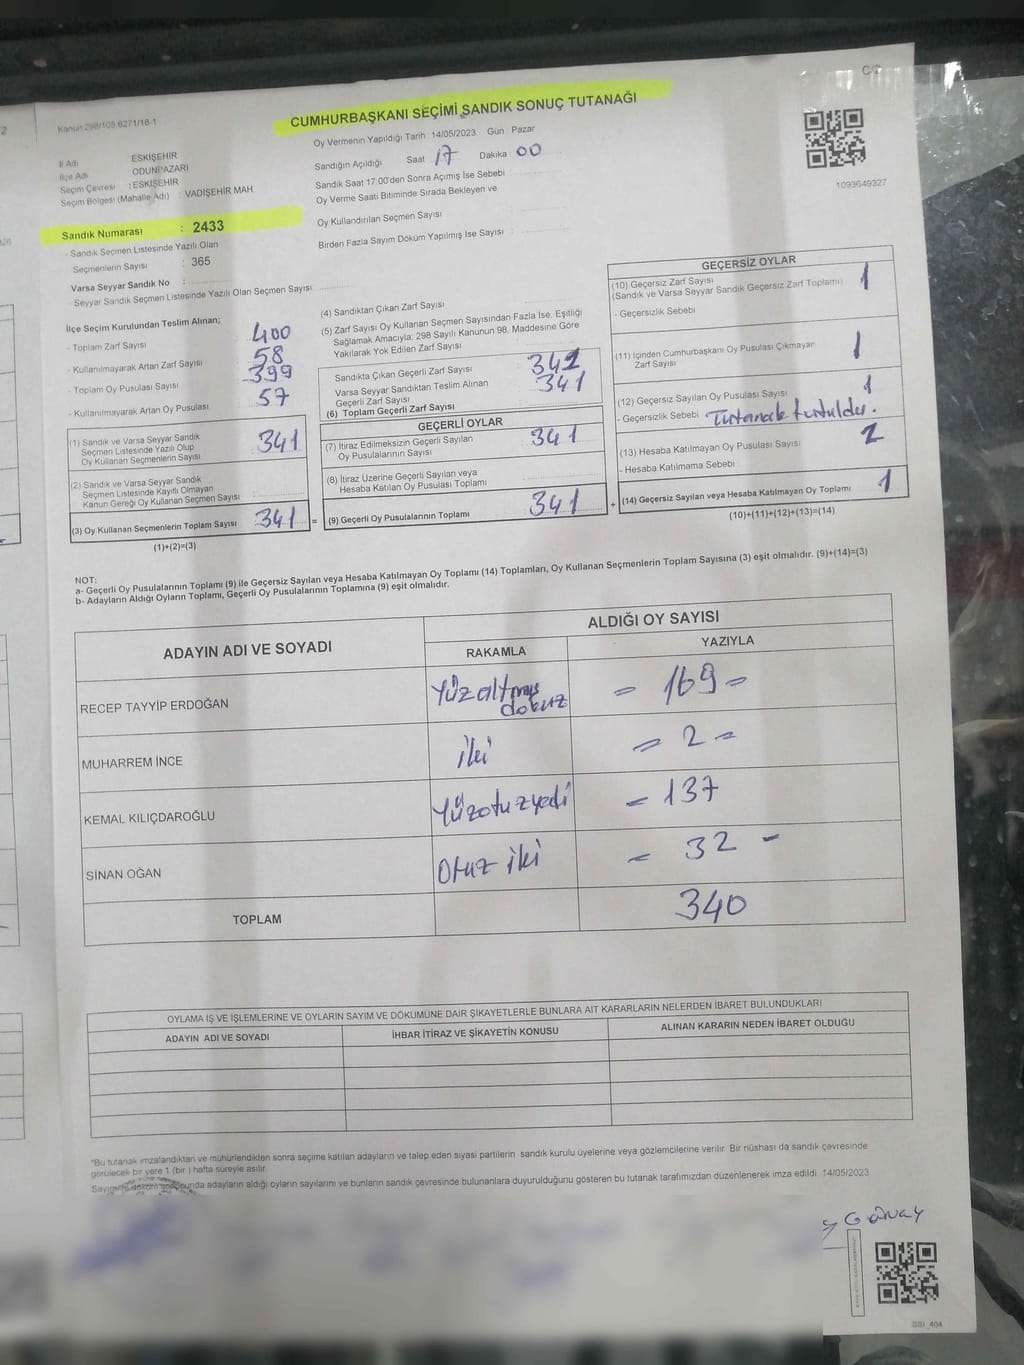 C/2
Kanun 298/105.6271/18-1
CUMHURBAŞKANI SEÇİMİ SANDIK SONUÇ TUTANAĞI
Oy Vermenin Yapıldığı Tarih : 14/05/2023 Gün : Pazar
İl Adı : ESKİŞEHİR
İlçe Adı : ODUNPAZARI
Seçim Çevresi : ESKİŞEHİR
Seçim Bölgesi (Mahalle Adı) : VADİŞEHİR MAH.
Sandığın Açıldığı Saat 17 Dakika 00
Sandık Saat 17:00'den Sonra Açımış İse Sebebi
Oy Verme Saati Bitiminde Sırada Bekleyen ve
Oy Kullandırılan Seçmen Sayısı :
Birden Fazla Sayım Döküm Yapılmış İse Sayısı :
1093649327
Sandık Numarası : 2433
- Sandık Seçmen Listesinde Yazılı Olan
Seçmenlerin Sayısı : 365
Varsa Seyyar Sandık No :
- Seyyar Sandık Seçmen Listesinde Yazılı Olan Seçmen Sayısı :
İlçe Seçim Kurulundan Teslim Alınan;
- Toplam Zarf Sayısı : 400
- Kullanılmayarak Artan Zarf Sayısı : 58
- Toplam Oy Pusulası Sayısı : 399
- Kullanılmayarak Artan Oy Pusulası : 57
(1) Sandık ve Varsa Seyyar Sandık
Seçmen Listesinde Yazılı Olup
Oy Kullanan Seçmenlerin Sayısı 341
(2) Sandık ve Varsa Seyyar Sandık
Seçmen Listesinde Kayıtlı Olmayan
Kanun Gereği Oy Kullanan Seçmen Sayısı :
(3) Oy Kullanan Seçmenlerin Toplam Sayısı 341 =
(1)+(2)=(3)
(4) Sandıktan Çıkan Zarf Sayısı
(5) Zarf Sayısı Oy Kullanan Seçmen Sayısından Fazla İse, Eşitliği
Sağlamak Amacıyla; 298 Sayılı Kanunun 98. Maddesine Göre
Yakılarak Yok Edilen Zarf Sayısı :
Sandıkta Çıkan Geçerli Zarf Sayısı 341
Varsa Seyyar Sandıktan Teslim Alınan
Geçerli Zarf Sayısı 341
(6) Toplam Geçerli Zarf Sayısı
GEÇERLİ OYLAR
(7) İtiraz Edilmeksizin Geçerli Sayılan
Oy Pusulalarının Sayısı 341
(8) İtiraz Üzerine Geçerli Sayılan veya
Hesaba Katılan Oy Pusulası Toplamı :
(9) Geçerli Oy Pusulalarının Toplamı 341 +
GEÇERSİZ OYLAR
(10) Geçersiz Zarf Sayısı
(Sandık ve Varsa Seyyar Sandık Geçersiz Zarf Toplamı) 1
- Geçersizlik Sebebi
(11) İçinden Cumhurbaşkanı Oy Pusulası Çıkmayan
Zarf Sayısı 1
(12) Geçersiz Sayılan Oy Pusulası Sayısı 1
- Geçersizlik Sebebi : Tutanak tutuldu.
(13) Hesaba Katılmayan Oy Pusulası Sayısı
- Hesaba Katılmama Sebebi
(14) Geçersiz Sayılan veya Hesaba Katılmayan Oy Toplamı 1
(10)+(11)+(12)+(13)=(14)
NOT:
a- Geçerli Oy Pusulalarının Toplamı (9) ile Geçersiz Sayılan veya Hesaba Katılmayan Oy Toplamı (14) Toplamları, Oy Kullanan Seçmenlerin Toplam Sayısına (3) eşit olmalıdır. (9)+(14)=(3)
b- Adayların Aldığı Oyların Toplamı, Geçerli Oy Pusulalarının Toplamına (9) eşit olmalıdır.
ADAYIN ADI VE SOYADI
ALDIĞI OY SAYISI
RAKAMLA YAZIYLA
RECEP TAYYİP ERDOĞAN Yüzaltmış dokuz = 169 =
MUHARREM İNCE iki = 2 =
KEMAL KILIÇDAROĞLU Yüzotuzyedi = 137
SİNAN OĞAN Otuz iki - 32 -
TOPLAM 340
OYLAMA İŞ VE İŞLEMLERİNE VE OYLARIN SAYIM VE DÖKÜMÜNE DAİR ŞİKAYETLERLE BUNLARA AİT KARARLARIN NELERDEN İBARET BULUNDUKLARI
ADAYIN ADI VE SOYADI İHBAR İTİRAZ VE ŞİKAYETİN KONUSU ALINAN KARARIN NEDEN İBARET OLDUĞU
*Bu tutanak imzalandıktan ve mühürlendikten sonra seçime katılan adayların ve talep eden siyasi partilerin sandık kurulu üyelerine veya gözlemcilerine verilir. Bir nüshası da sandık çevresinde
görülecek bir yere 1 (bir) hafta süreyle asılır.
adayların aldığı oyların sayılarını ve bunların sandık çevresinde bulunanlara duyurulduğunu gösteren bu tutanak tarafımızdan düzenlenerek imza edildi. 14/05/2023
SSI_404